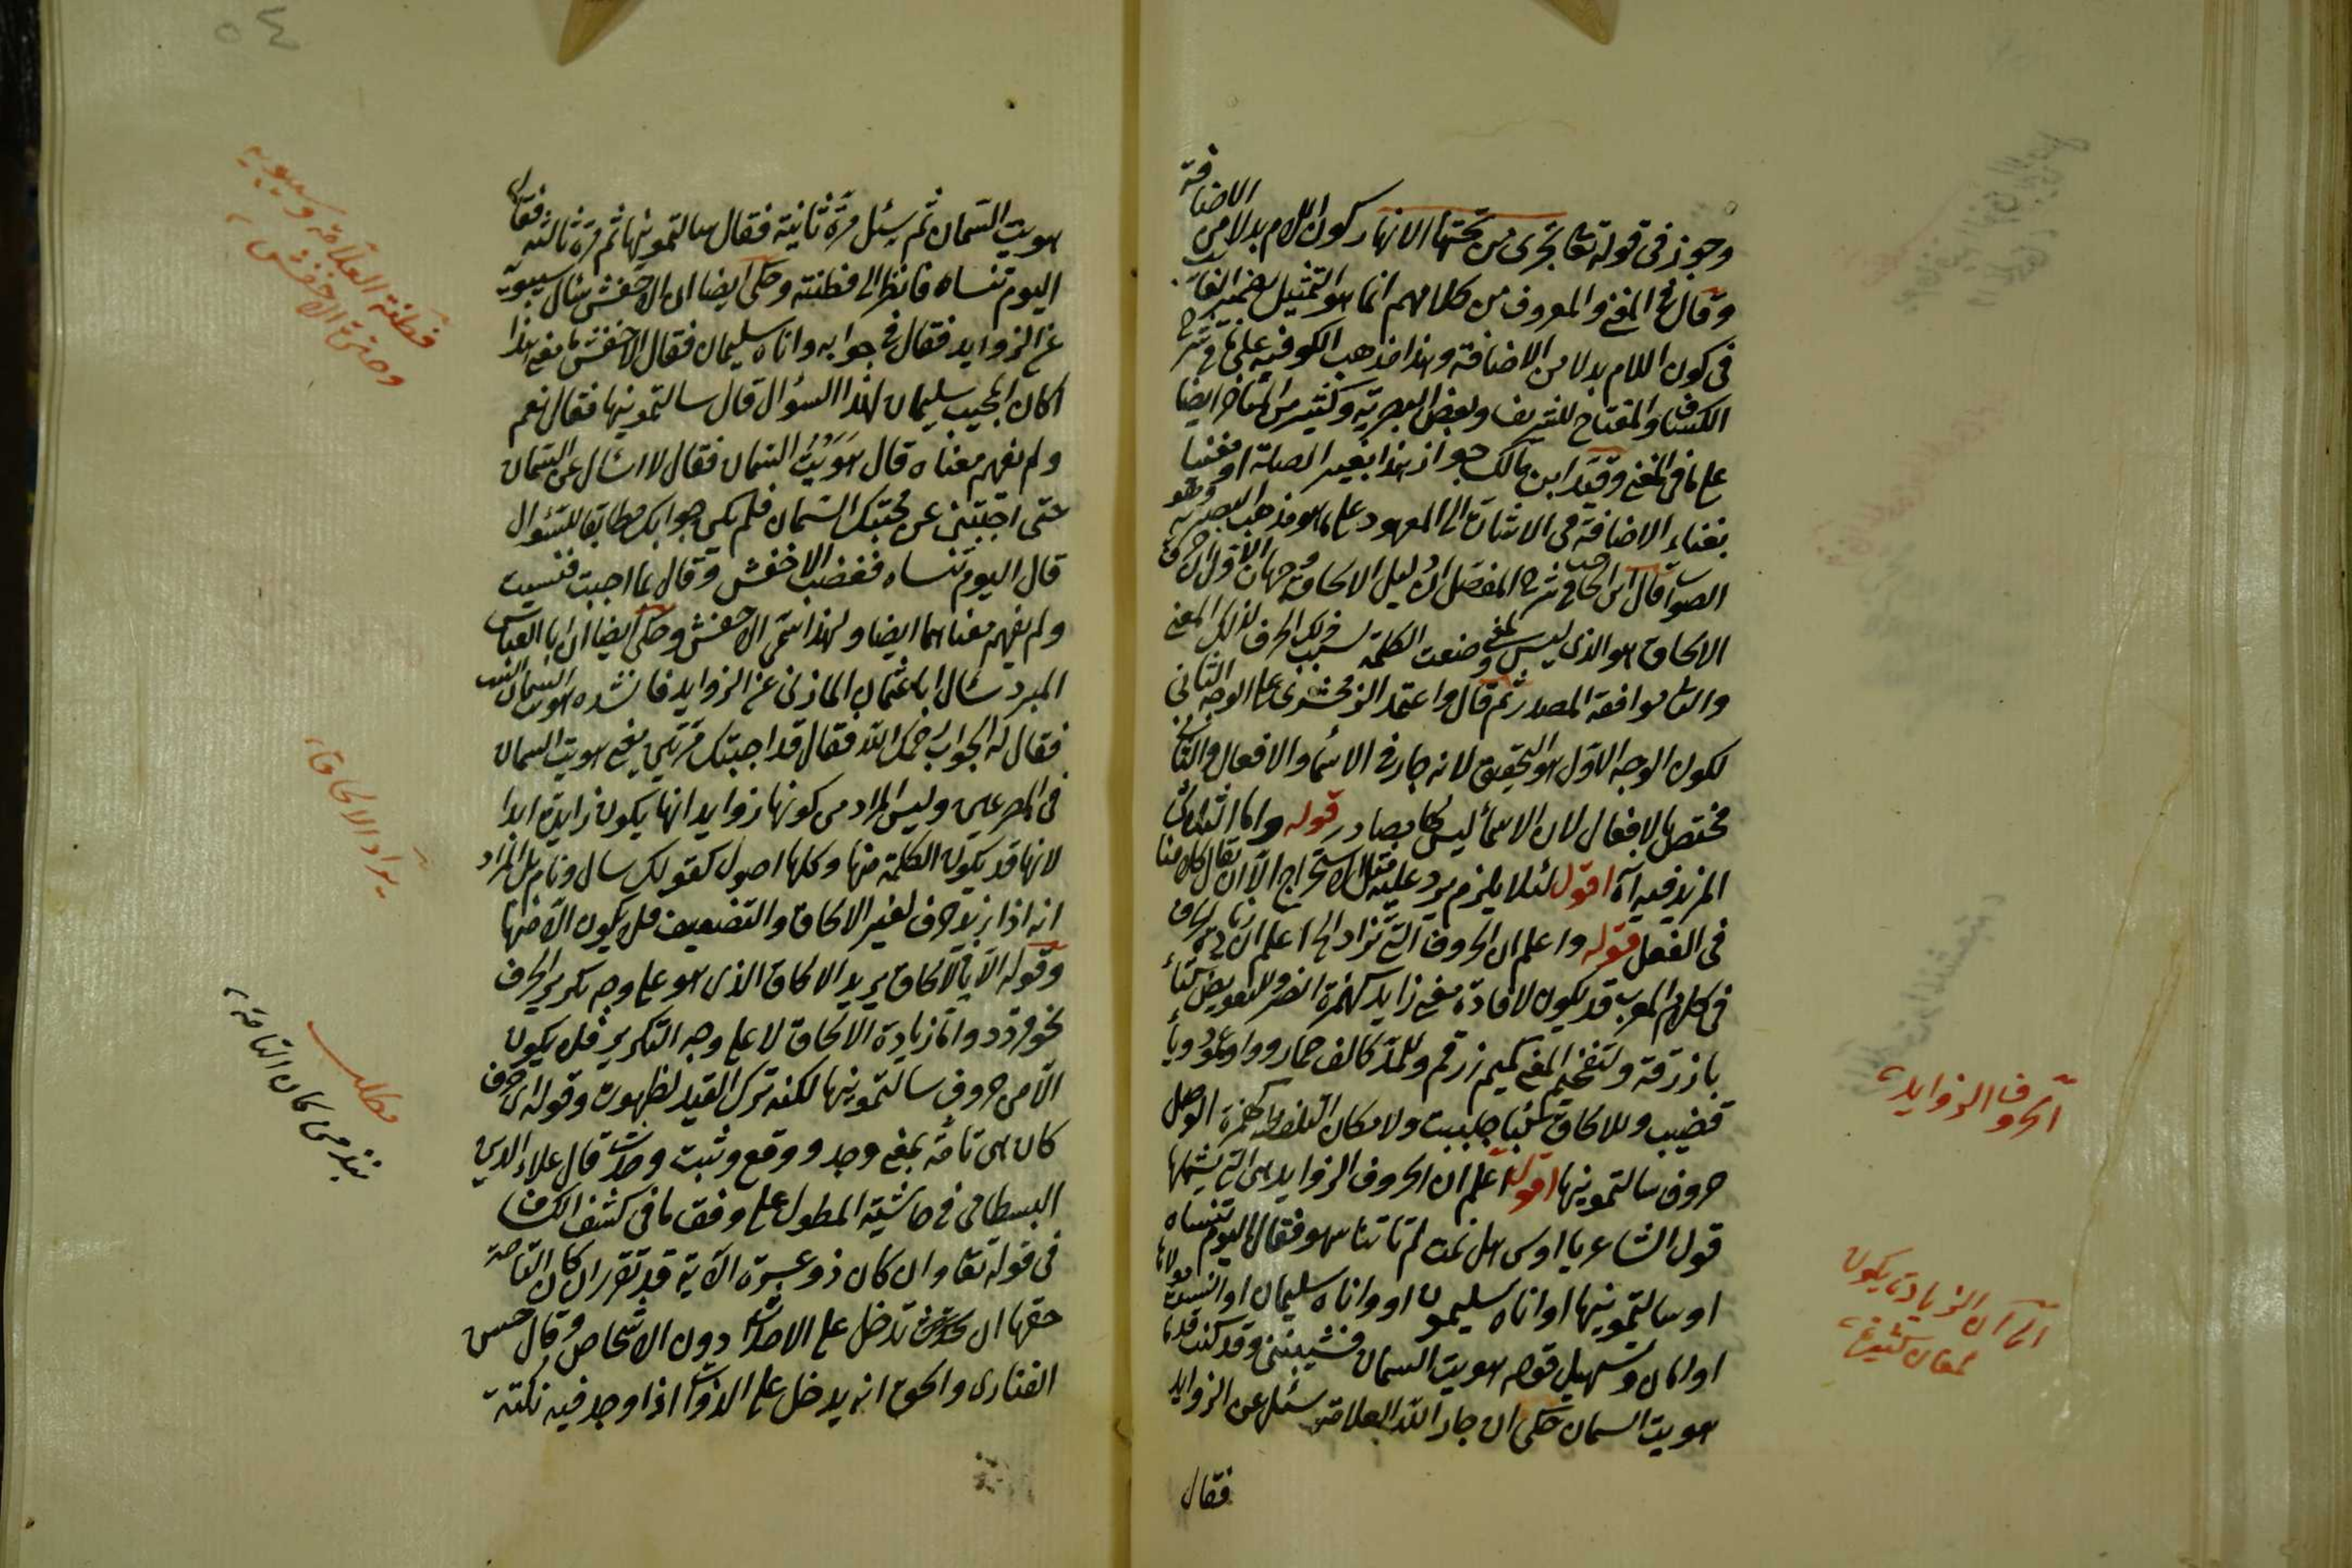 وجوز فى قوله تعا تجرى من تحتها الانهار كون اللام بدلا من الاضافة
وقال فى المغنى والمعروف من كلامهم انما هو التمثيل بضمير الغائب
فى كون اللام بدلا من الاضافة وهذا مذهب الكوفية على ما فى شرح
الكشاف والمفتاح للشريف وبعض البصرية وكثير من المتاخر ايضا
على ما فى المغنى وقيد ابن مالك جواز هذا بغير الصلة او
بغناء الاضافة فى الاشارة الى المعهود على ما هو مذهب البصرية وهو
الصواب قال ابن الحاجب فى شرح المفصل ان دليل الالحاق وجهان الاول ان حرف
الالحاق هو الذى ليس لمعنى وضعت الكلمة بسبب ذلك الحرف لذلك المعنى
والثانى موافقة المصدر ثم قال واعتمد الزمخشرى على الوجه الثانى
لكون الوجه الاول هو التحقيق لانه جار فى الاسماء والافعال والثانى
مختص بالافعال لان الاسماء ليس لها مصادر قوله واما الثلاثى
المزيد فيه اه اقول لئلا يلزم يرد عليه مثل استخراج الا ان يقال كلامنا
فى الفعل قوله واعلم ان الحروف التى تزاد الخ اعلم ان زيادة الحرف
فى كلام العرب قد يكون لافادة معنى زايد كهمزة انصر وللتعويض كتاء
زنادقة ولتفخيم المعنى كميم زرقم وللمد كالف حمار وواو عمود وياء
قضيب وللالحاق كباء جلبب ولامكان التلفظ به كهمزة الوصل
حروف سالتمونيها اقول اعلم ان الحروف الزوايد هى التى يشملها
قول الشاعر يا اوس هل نمت لم تاتنا سهو فقال اليوم تنساه
او سالتمونيها او اتاه سليمون او واتاه سليمان او
او امان وتسهيل قوله هويت السمان فشيبننى وقد كنت قدما
هويت السمان حكى ان جار الله العلامة سئل عن الزوايد
فقال
الحروف الزوايد
اعلم ان الزيادة يكون
لمعان كثيرة
٥٤
هويت السمان ثم سئل مرة ثانية فقال سالتمونيها ثم مرة ثالثة فقال
اليوم تنساه فانظر الى فطنته وحكى ايضا ان الاخفش سال سيبويه
عن الزوايد فقال فى جوابه واتاه سليمان فقال الاخفش ما معنى هذا
اكان المجيب سليمان لهذا السؤال قال سالتمونيها فقال نعم
ولم نفهم معناه قال هَوَيْتُ السمان فقال لا اسال عن السمان
حتى اجبتنى عن محبتك السمان فلم يكن جوابك مطابقا للسؤال
قال اليوم تنساه فغضب الاخفش وقال ما اجبت فنسيت
ولم يفهم معناهما ايضا ولهذا سمى الاخفش وحكى ايضا ان ابا العباس
المبرد سال ابا عثمان المازنى عن الزوايد فانشده هويت السمان البيت
فقال له الجواب رحمك الله فقال قد اجبتك مرتين يعنى هويت السمان
فى المصرعين وليس المراد من كونها زوايد انها يكون زايدة ابدا
لانها قد يكون الكلمة منها وكلها اصول كقولك سال ونام بل المراد
انه اذا زيد حرف لغير الالحاق والتضعيف فلا يكون الا منها
وقوله الا فى الالحاق يريد الالحاق الذى هو على وجه تكرير الحرف
نحو قردد واما زيادة الالحاق لا على وجه التكرير فلا يكون
الا من حروف سالتمونيها لكنه ترك القيد لظهوره وقوله اى حرف
كان هى تامة بمعنى وجد ووقع وثبت وحدث قال علاء الدين
البسطامى فى حاشية المطول على وفق ما فى كشف الكشاف
فى قوله تعا وان كان ذو عسرة الآية قد تقرر ان كان الناقصة
حقها ان تدخل على الاحداث دون الاشخاص وقال حسن
الفنارى والحق انه يدخل على الذوات اذا وجد فيه نكتة
فطنة العلامة وسيبويه
وحدة الاخفش
يراد الالحاق
مطلب
نبذ من كان التامة